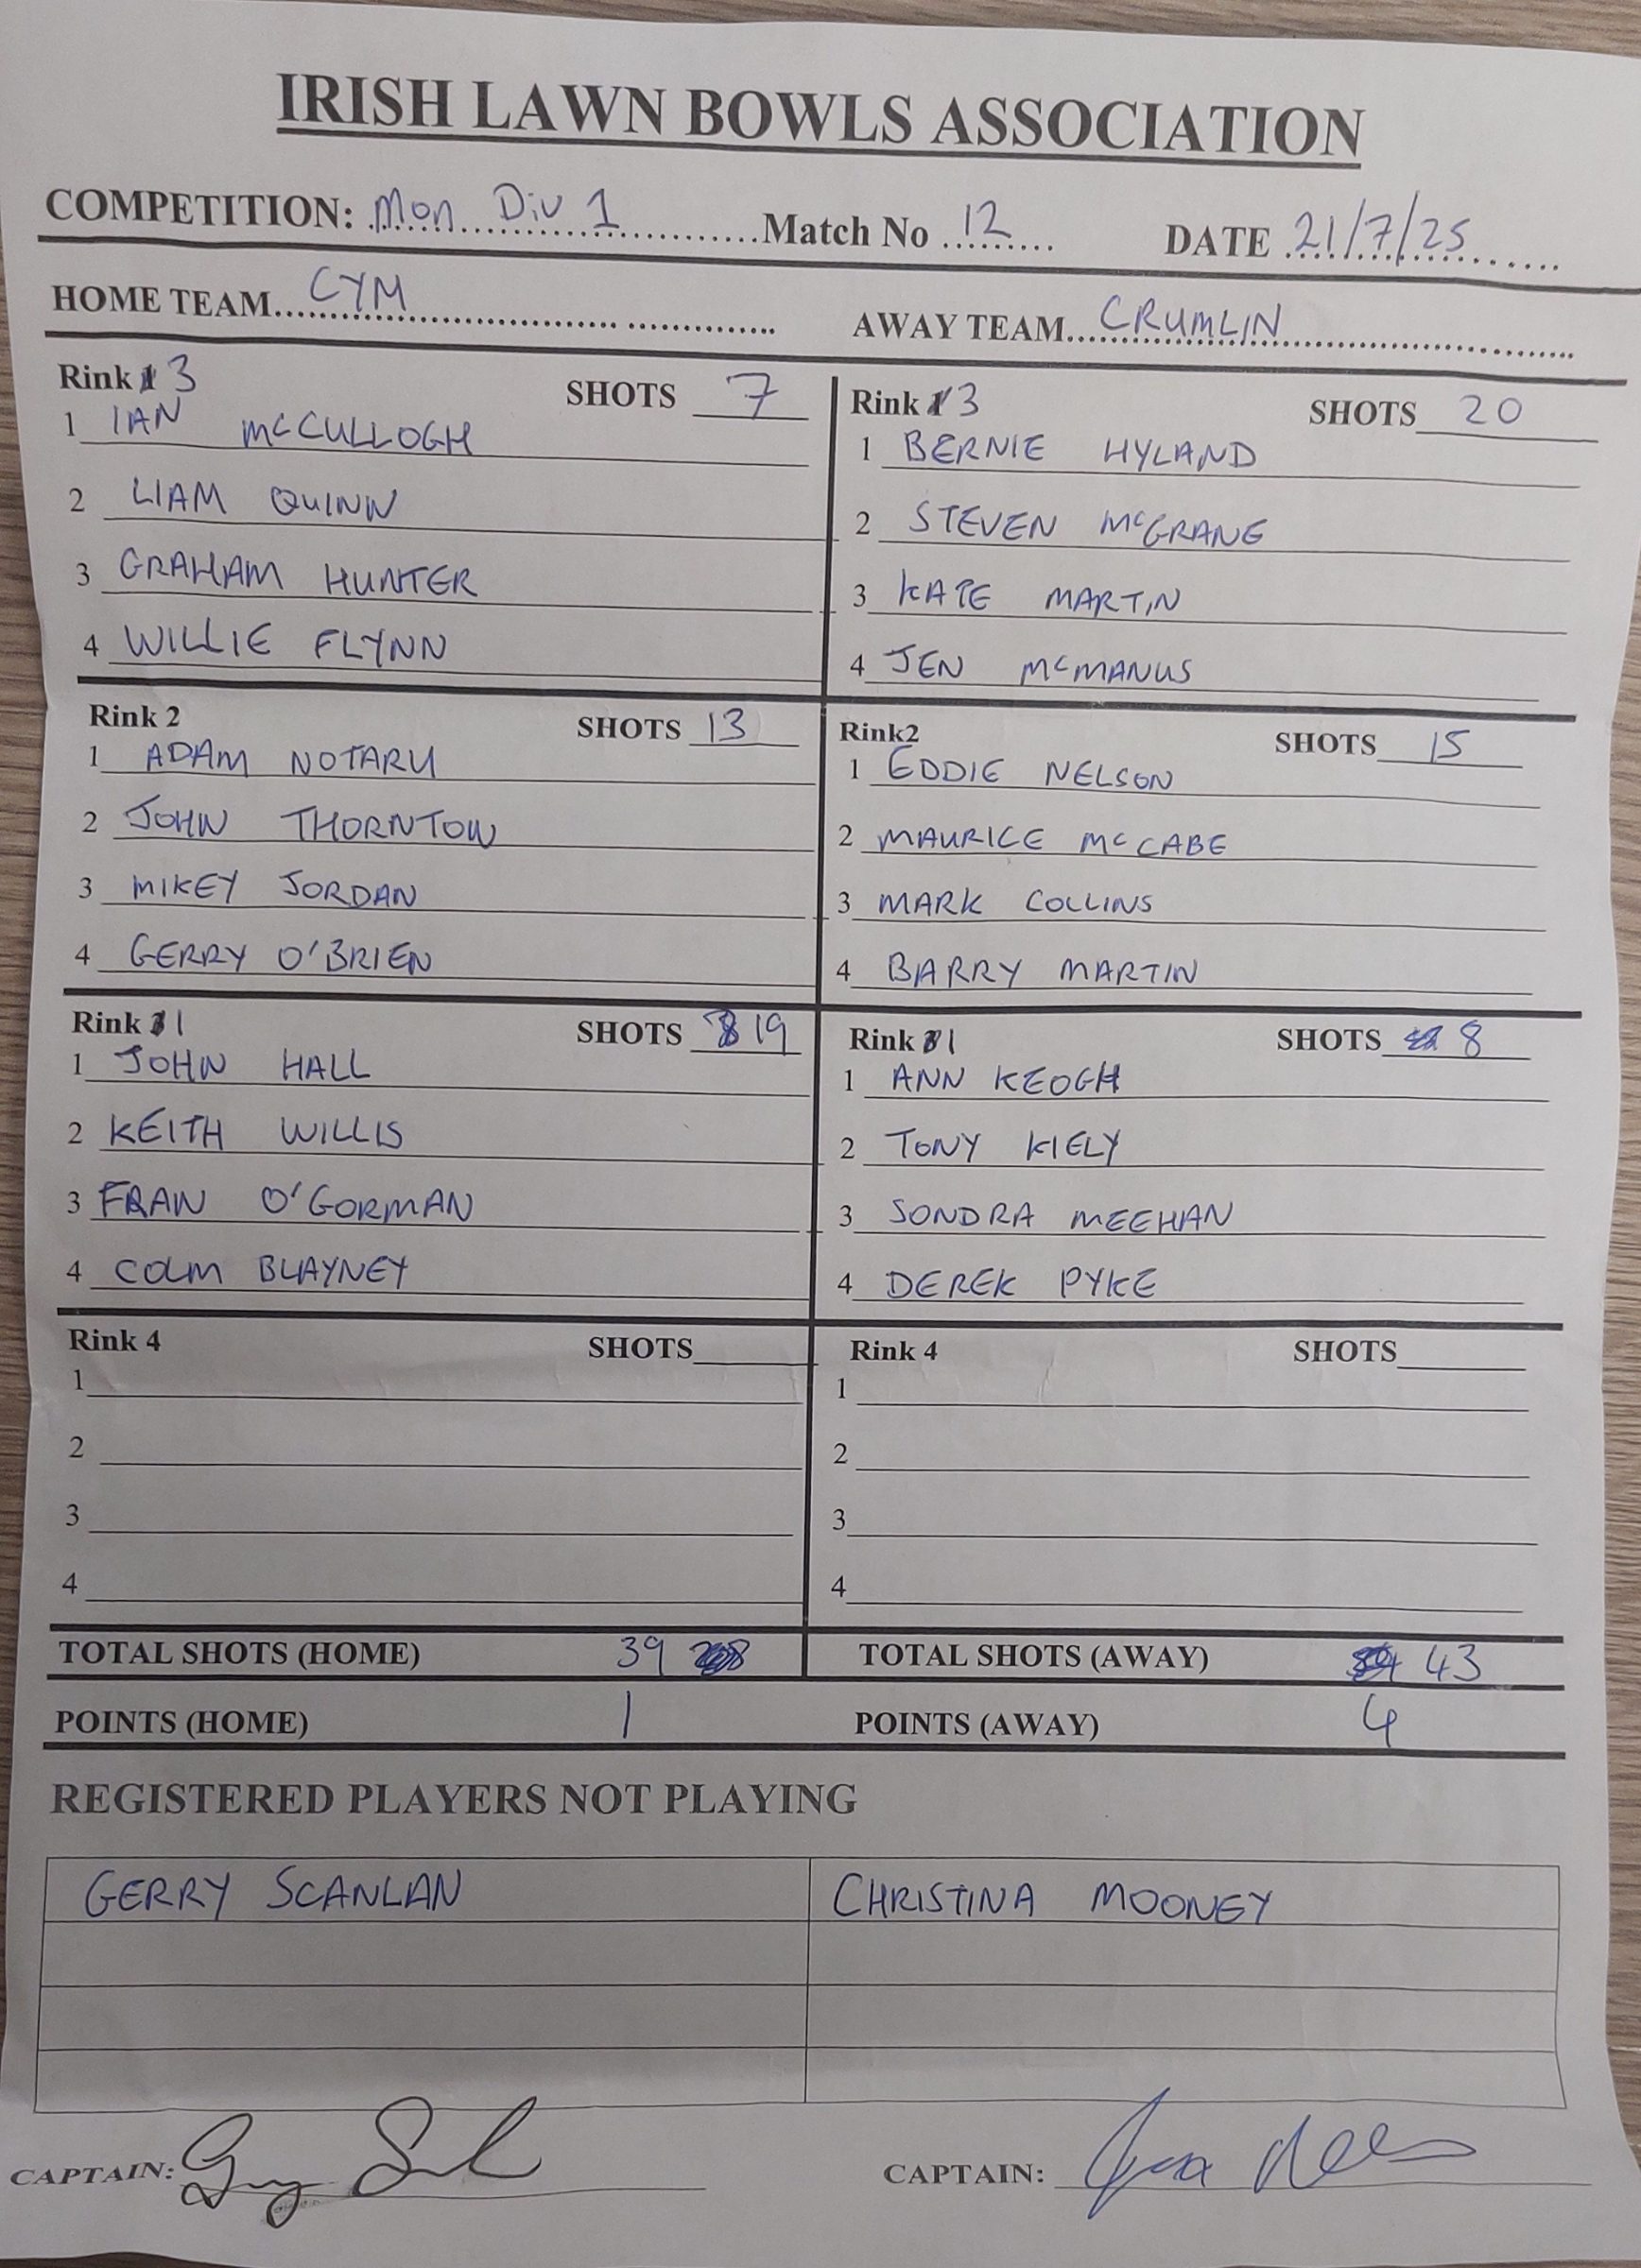 IRISH LAWN BOWLS ASSOCIATION
COMPETITION: Mon Div 1 Match No 12 DATE 21/7/25
HOME TEAM CYM AWAY TEAM CRUMLIN
Rink 3 SHOTS 7
1 IAN McCULLOGH
2 LIAM QUINN
3 GRAHAM HUNTER
4 WILLIE FLYNN
Rink 3 SHOTS 20
1 BERNIE HYLAND
2 STEVEN McGRANE
3 KATE MARTIN
4 JEN McMANUS
Rink 2 SHOTS 13
1 ADAM NOTARU
2 JOHN THORNTON
3 MIKEY JORDAN
4 GERRY O'BRIEN
Rink2 SHOTS 15
1 EDDIE NELSON
2 MAURICE McCABE
3 MARK COLLINS
4 BARRY MARTIN
Rink 1 SHOTS 19
1 JOHN HALL
2 KEITH WILLIS
3 FRAN O'GORMAN
4 COLM BLAYNEY
Rink 1 SHOTS 8
1 ANN KEOGH
2 TONY KIELY
3 SONDRA MEEHAN
4 DEREK PYKE
Rink 4 SHOTS
1
2
3
4
Rink 4 SHOTS
1
2
3
4
TOTAL SHOTS (HOME) 39 TOTAL SHOTS (AWAY) 43
POINTS (HOME) 1 POINTS (AWAY) 4
REGISTERED PLAYERS NOT PLAYING
GERRY SCANLAN CHRISTINA MOONEY
CAPTAIN: CAPTAIN: